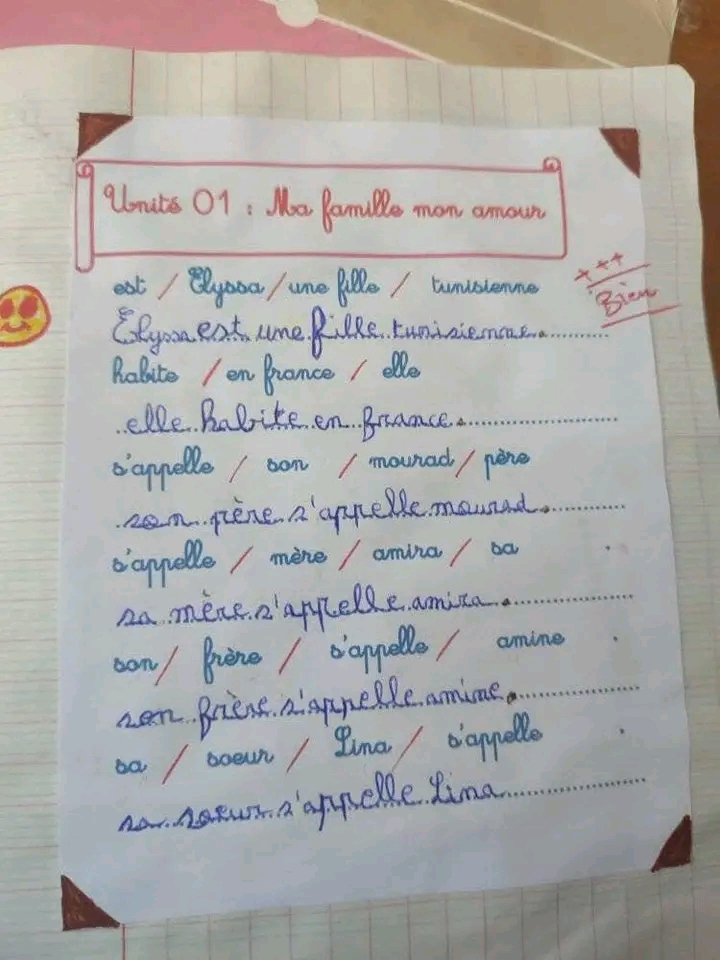 Unité 01 : Ma famille mon amour
est / Elyssa / une fille / tunisienne
+++
Bien
Elyssa est une fille tunisienne.
habite / en france / elle
elle habite en france.
s'appelle / son / mourad / père
son père s'appelle mourad.
s'appelle / mère / amira / sa
sa mère s'appelle amira.
son / frère / s'appelle / amine
son frère s'appelle amine.
sa / soeur / Lina / s'appelle
sa soeur s'appelle Lina